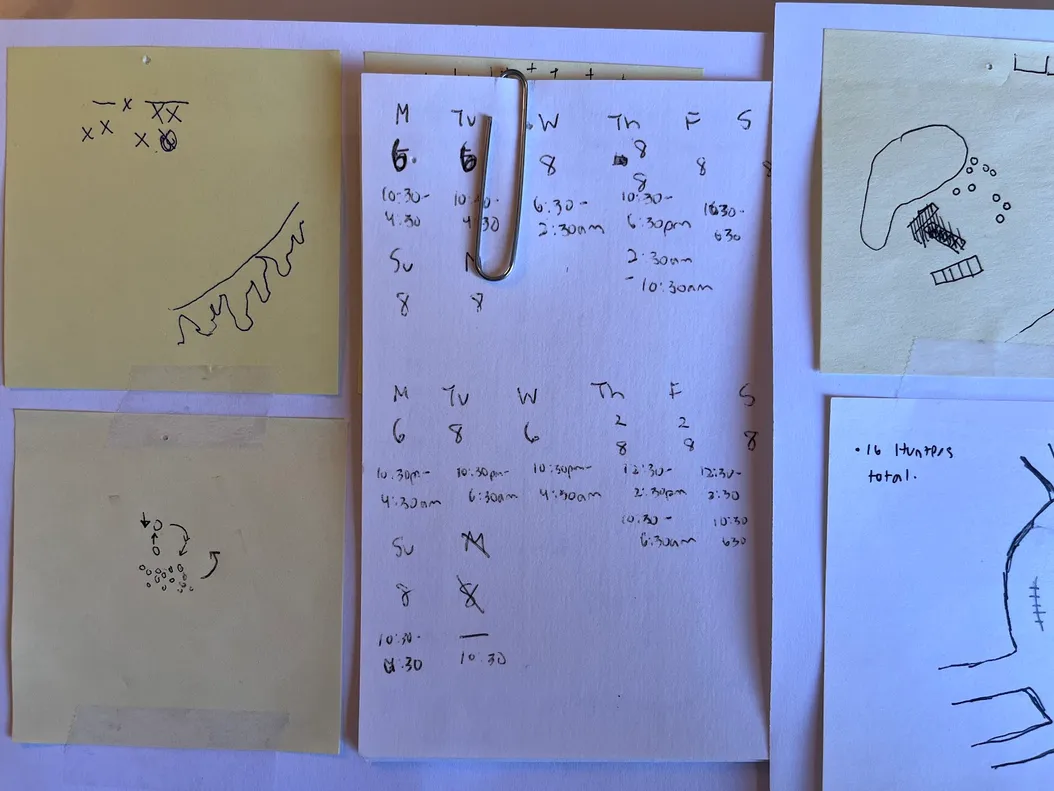 M Tu W Th F S
6 6 8 8 8 8
8
10:30- 10:30- 6:30- 10:30- 1030-
4:30 4:30 2:30am 6:30pm 630
Su M 2:30am
- 10:30am
8 8
M Tu W Th F S
6 8 6 2 2
8 8 8
10:30pm- 10:30pm- 10:30pm- 12:30- 12:30-
4:30am 6:30am 4:30am 2:30pm 2:30
10:30- 10:30
6:30am 630
Su M
8 8
10:30- —
6:30 10:30
• 16 Hunters
total.